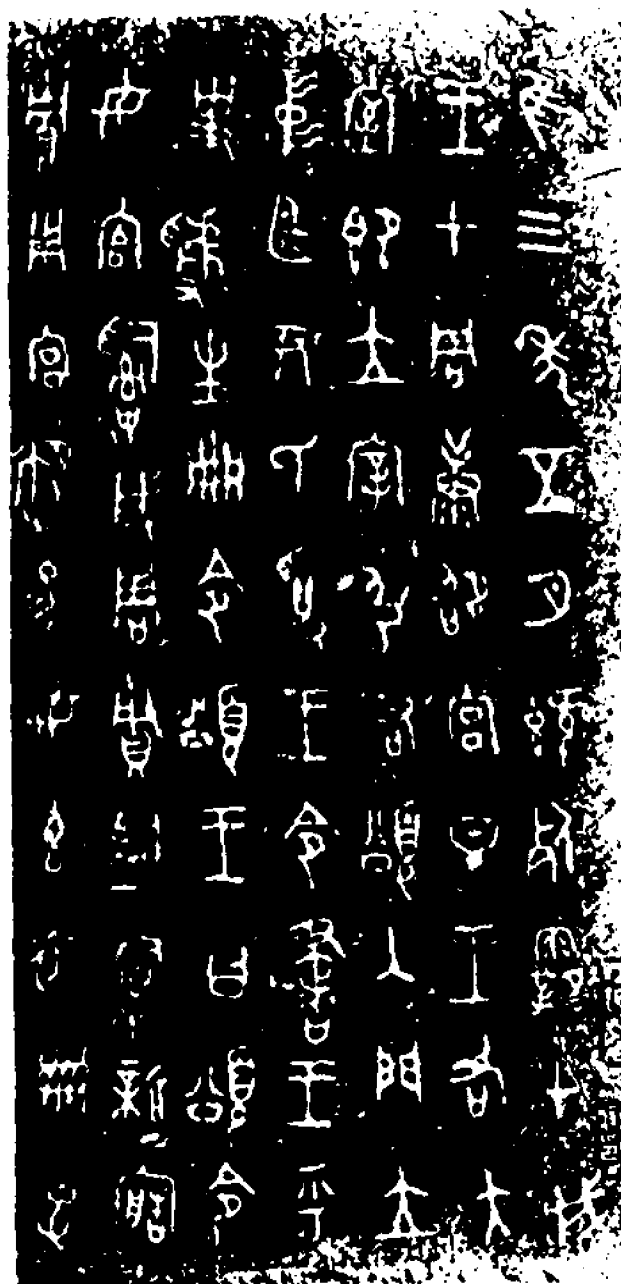 隹三年五月既死霸甲戌
王才周康卲宮旦王各大
室即立宰引右頌入門立
中廷尹氏受王令書王乎
史虢生冊令頌王曰頌令
女官𤔲成周貯監𤔲新造
貯用宮御易女玄衣黹屯